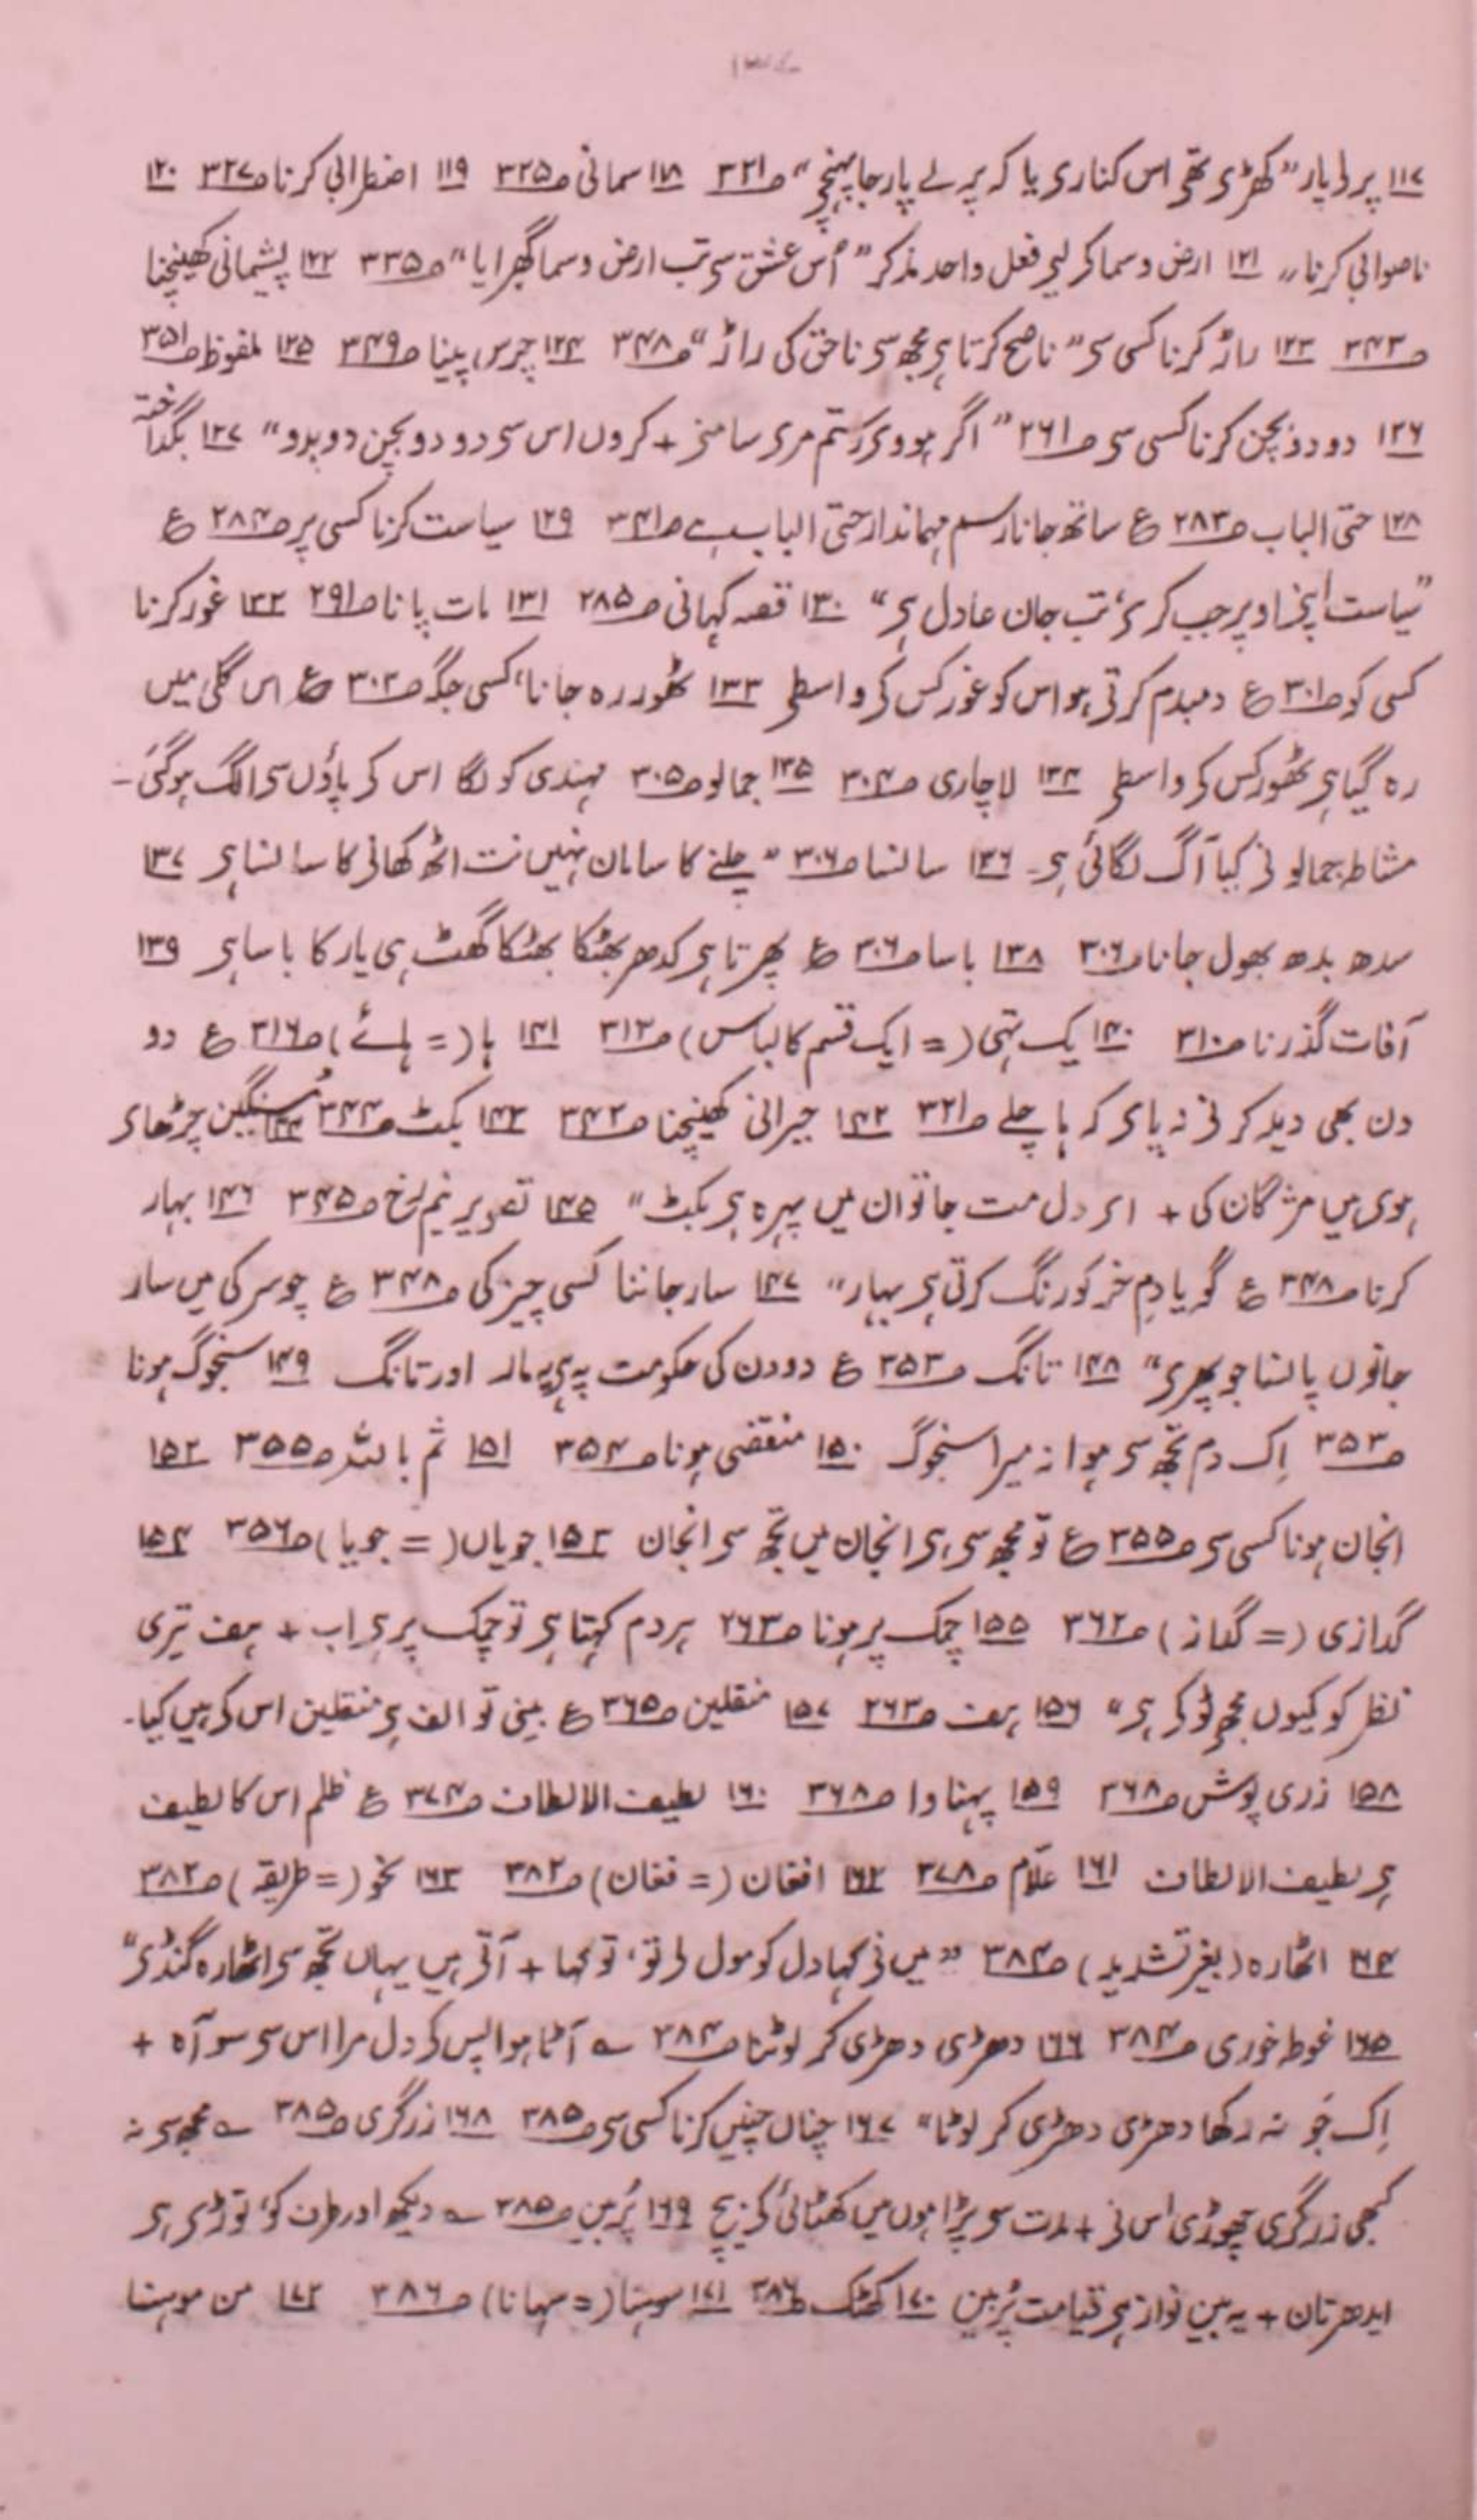 ۱۳۷
۱۱۷ پرلے پار "کھڑی تھی اس کناری یا کہ پرلے پار جا پہنچی" ص۳۲۱ ۱۱۸ سمائی ص۳۲۵ ۱۱۹ اضطرابی کرنا ص۳۲۷ ۱۲۰
ناصوابی کرنا ،، ۱۲۱ ارض و سما کے لیے فعل واحد مذکر "اُس عشق سے تب ارض و سما گھبرایا" ص۳۳۵ ۱۲۲ پشیمانی کھینچنا
ص۳۴۳ ۱۲۳ راڑ کرنا کسی سے "ناصح کرتا ہے مجھ سے ناحق کی راڑ" ص۳۴۸ ۱۲۴ چرس پینا ص۳۴۹ ۱۲۵ ملفوظ ص۳۵۱
۱۲۶ دو دو بچن کرنا کسی سے ص۲۶۱ "اگر ہووے رستم مرے سامنے + کروں اس سے دو دو بچن دو بدو" ۱۲۷ بگداختہ
۱۲۸ حتی الباب ص۲۸۳ ع ساتھ جانا رسم مہماندار حتی الباب ہے ص۳۴۱ ۱۲۹ سیاست کرنا کسی پر ص۲۸۴ ع
"سیاست اپنے اوپر جب کرے، تب جان عادل ہے" ۱۳۰ قصہ کہانی ص۲۸۵ ۱۳۱ بات پانا ص۲۹۱ ۱۳۲ غور کرنا
کسی کو ص۳۰۱ ع دمبدم کرتے ہو اس کو غور کس کے واسطے ۱۳۳ ٹھور رہ جانا، کسی جگہ ص۳۰۲ ع اس گلی میں
رہ گیا ہے ٹھور کس کے واسطے ۱۳۴ لاچاری ص۳۰۴ ۱۳۵ جمالو ص۳۰۵ مہندی کو لگا اس کے پاؤں سے الگ ہوگئی۔
مشاطہ جمالو نے کیا آگ لگائی ہے۔ ۱۳۶ سانسا ص۳۰۶ "چلنے کا سامان نہیں نت اٹھ کھانے کا سانسا ہے ۱۳۷
سدھ بدھ بھول جانا ص۳۰۶ ۱۳۸ باسا ص۳۰۶ ع پھرتا ہے کدھر بھٹکا بھٹکا گھٹ ہی یار کا باسا ہے ۱۳۹
آفات گذرنا ص۳۱۰ ۱۴۰ یک تہی (= ایک قسم کا لباس) ص۳۱۲ ۱۴۱ ہا (= ہائے) ص۳۱۶ ع دو
دن بھی دید کرنے نہ پائے کہ ہا چلے ص۳۲۱ ۱۴۲ حیرانی کھینچنا ص۳۴۲ ۱۴۳ بکٹ ص۳۴۴ ۱۴۴ سنگین چڑھائے
ہوے ہیں مژگان کی + اے دل مت جا تو ان میں پہرہ ہے بکٹ" ۱۴۵ تصویر نیم رخ ص۳۴۵ ۱۴۶ بہار
کرنا ص۳۴۸ ع گویا دمِ خر کو رنگ کرتی ہے بہار" ۱۴۷ سار جاننا کسی چیز کی ص۳۴۸ ع چوسر کی میں سار
جانوں پانسا جو پھرے" ۱۴۸ تانگ ص۳۵۳ ع دو دن کی حکومت پہ ہے یہ مار اور تانگ ۱۴۹ سنجوگ ہونا
ص۳۵۳ اِک دم تجھ سے ہوا نہ میرا سنجوگ ۱۵۰ منقضی ہونا ص۳۵۴ ۱۵۱ ثم باللہ ص۳۵۵ ۱۵۲
انجان ہونا کسی سے ص۳۵۵ ع تو مجھ سے ہے انجان میں تجھ سے انجان ۱۵۳ جویاں (= جویا) ص۳۵۶ ۱۵۴
گدازی (= گداز) ص۳۶۲ ۱۵۵ چمک پر ہونا ص۲۶۳ ہر دم کہتا ہے تو چمک پر ہے اب + ہف تیری
نظر کو کیوں مجھے ٹوکے ہے" ۱۵۶ ہف ص۲۶۳ ۱۵۷ منقلین ص۳۶۵ ع بینی تو الف ہے منقلین اس کے ہیں کیا۔
۱۵۸ زری پوش ص۳۶۸ ۱۵۹ پہناوا ص۳۶۸ ۱۶۰ لطیف الالطاف ص۳۷۴ ع ظلم اس کا لطیف
ہے لطیف الالطاف ۱۶۱ علّام ص۳۷۸ ۱۶۲ افغان (= فغان) ص۳۸۲ ۱۶۳ نحو (= طریقہ) ص۳۸۲
۱۶۴ اٹھارہ (بغیر تشدید) ص۳۸۴ "میں نے کہا دل کو مول لے تو، تو کہا + آتے ہیں یہاں تجھ سے اٹھارہ گنڈے"
۱۶۵ غوطہ خوری ص۳۸۴ ۱۶۶ دھڑی دھڑی کر لوٹنا ص۳۸۴ ؎ آٹا ہوا پس کے دل مرا اس سے سو آہ +
اِک جَو نہ رکھا دھڑی دھڑی کر لوٹا" ۱۶۷ چناں چنیں کرنا کسی سے ص۳۸۵ ۱۶۸ زرگری ص۳۸۵ ؎ مجھ سے نہ
کبھی زرگری چھوڑی اس نے + مدت سے پڑا ہوں میں کھٹائی کے بیچ ۱۶۹ پُربین ص۳۸۵ ؎ دیکھ اور طرف کو، توڑے ہے
ایدھر تان + یہ بین نواز ہے قیامت پُربین ۱۷۰ کھٹک ص۳۸۶ ۱۷۱ سوہنا (= سہانا) ص۳۸۶ ۱۷۲ من موہنا